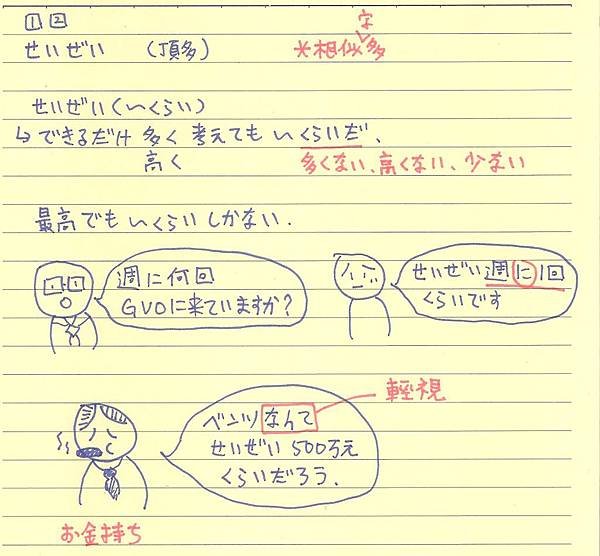 1 2
せいぜい (頂多) *相似字多
せいぜい(〜くらい)
↳できるだけ 多く 考えても 〜くらいだ、
高く 多くない、高くない、少ない
最高でも 〜くらい しかない.
週に何回
GVOに来ていますか?
せいぜい週に1回
くらいです
輕視
ベンツなんて
せいぜい500万元
くらいだろう.
お金持ち